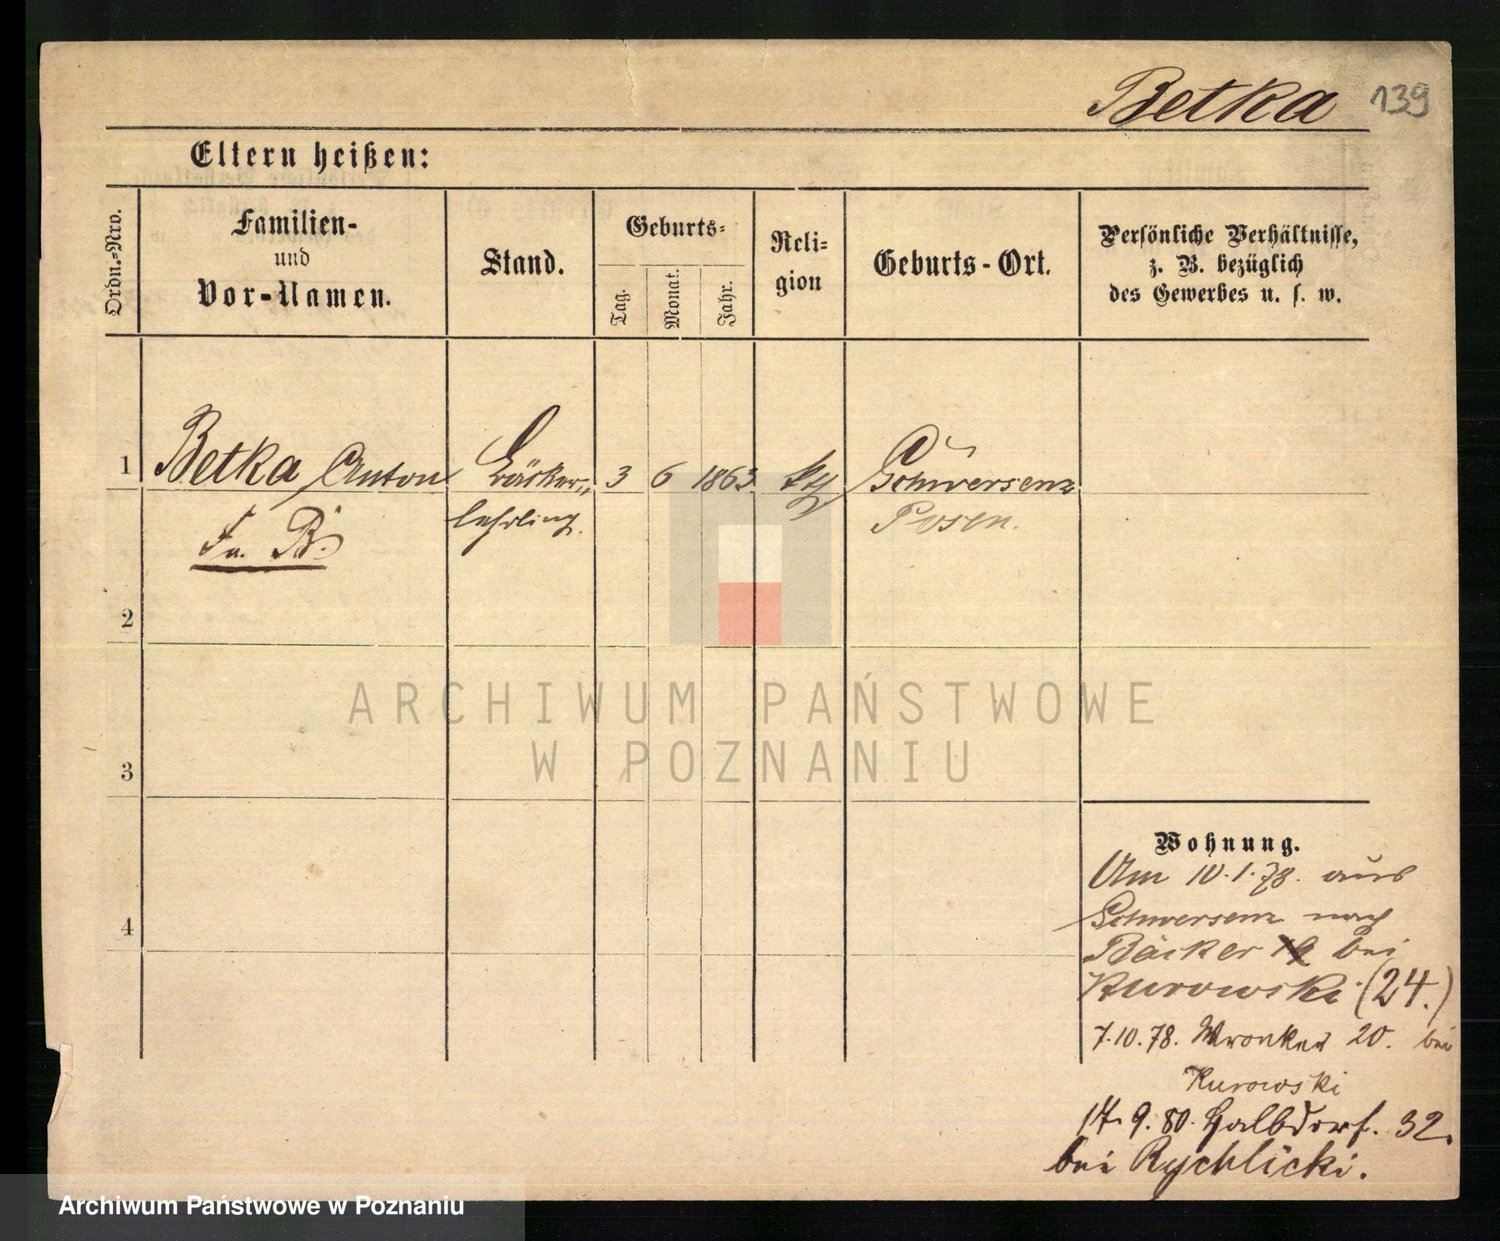 Betka 139
Eltern heißen:
Ordn.-Nro.
Familien-
und
Vor-Namen.
Stand.
Geburts-
Tag.
Monat.
Jahr.
Reli-
gion
Geburts-Ort.
Persönliche Verhältnisse,
z. B. bezüglich
des Gewerbes u. s. w.
1 Betka Anton Bäcker- 3 6 1863 kth Schwersenz
lehrling. Posen.
Fr. B.
2
3
4
ARCHIWUM PAŃSTWOWE
W POZNANIU
Wohnung.
Am 10.1.78. aus
Schwersenz nach
Bäcker bei
Kurowski (24.)
7.10.78. Wronker 20. bei
Kurowski
14.9.80. Halbdorf. 32.
bei Rychlicki.
Archiwum Państwowe w Poznaniu